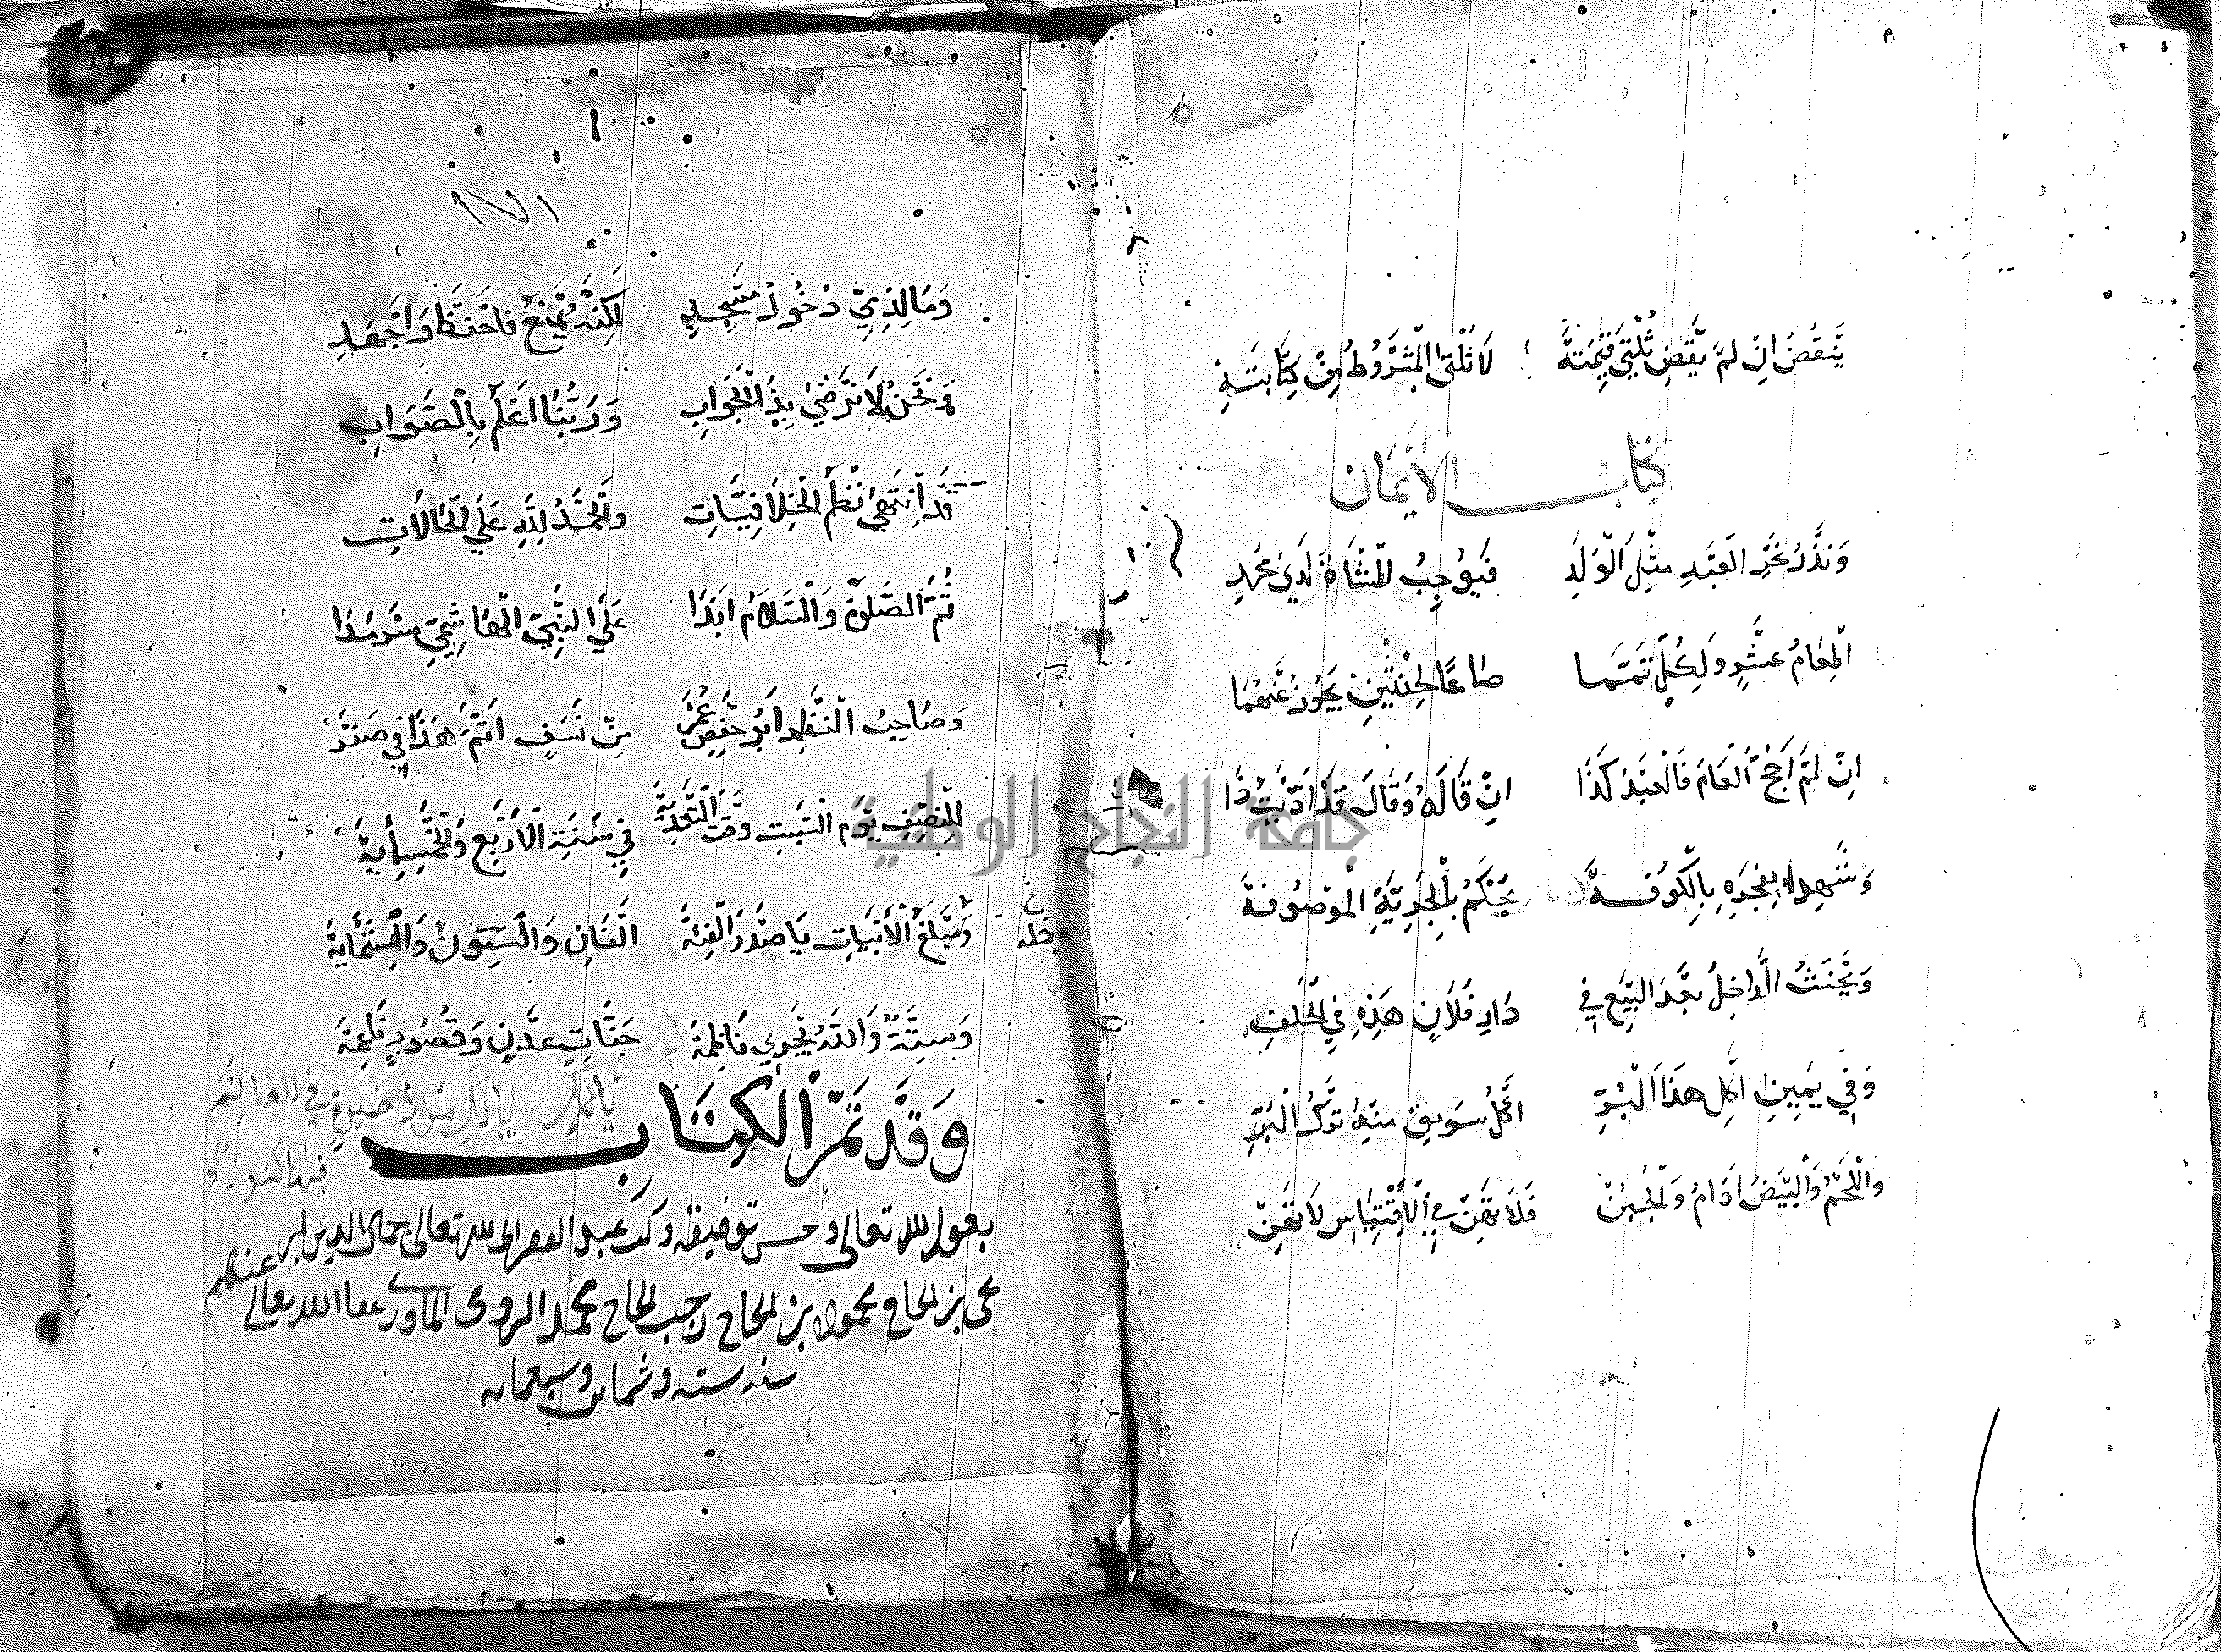 يَنْقُضُ اِنْ لَمْ يَقْضِ ثُلْثَيْ قِيمَتِهْ لَا ثُلْثَيِ الْمَشْرُوطِ مِنْ كِتَابَتِهْ
كتاب الأيمان
وَنَذْرُ نَحْرِ الْعَبْدِ مِثْلُ الْوَلَدِ فَيُوجِبُ الشَّاةَ لَدَى مُحَمَّدِ
اِطْعَامُ عَشْرٍ وَلِكُلٍّ تَمَّمَا صَاعًا لِحِنْثَيْنِ يَجُوزُ عَنْهُمَا
اِنْ لَمْ اَحُجَّ الْعَامَ فَالْعَبْدُ كَذَا اِنْ قَالَهُ وَقَالَ قَدْ اَدَّيْتُ ذَا
وَشَهِدَا بِنَحْرِهِ بِالْكُوفَهْ يُحْكَمُ بِالْحُرِّيَّةِ الْمَوْصُوفَهْ
وَيَحْنَثُ الدَّاخِلُ بَعْدَ الْبَيْعِ فِي دَارِ فُلَانٍ هَذِهِ فِي الْحَلِفِ
وَفِي يَمِينِ اَكْلِ هَذَا الْبُرِّ اَكْلُ سَوِيقٍ مِنْهُ تَرْكُ الْبِرِّ
وَاللَّحْمُ وَالْبَيْضُ اِدَامٌ وَالْجُبُنْ فَلَا تَقِفْ فِي الِاقْتِبَاسِ لَا تَقِفْ
١٧١
وَمَا لِذِمِّيٍّ دُخُولُ مَسْجِدِ لَكِنَّهُ يُمْنَعُ فَاحْفَظْ وَاجْهَدِ
وَنَحْنُ لَا نَرْضَى بِذَا الْجَوَابِ وَرَبُّنَا اَعْلَمُ بِالصَّوَابِ
قَدِ انْتَهَى نَظْمُ الْخِلَافِيَّاتِ وَالْحَمْدُ لِلَّهِ عَلَى الْحَالَاتِ
ثُمَّ الصَّلٰوةُ وَالسَّلَامُ اَبَدَا عَلَى النَّبِيِّ الْهَاشِمِيِّ سَرْمَدَا
وَصَاحِبُ النَّظْمِ اَبُو حَفْصٍ عُمَرْ مِنْ نَسَفٍ اَتَمَّ هَذَا فِي صَفَرْ
لِلنِّصْفِ يَوْمَ السَّبْتِ وَقْتَ التَّغْدِيَةْ فِي سَنَةِ الْاَرْبَعِ وَالْخَمْسِمِايَةْ
وَمَبْلَغُ الْاَبْيَاتِ يَا صَدْرَ الْفِئَةْ اَلْفَانِ وَالسِّتُّونَ وَالسِّتُّمِايَةْ
وَسِتَّةٌ وَاللَّهُ يَجْزِي نَاظِمَهْ جَنَّاتِ عَدْنٍ وَقُصُورٍ نَاعِمَهْ
وَقَدْ تَمَّ الْكِتَاب
بعون الله تعالى وحسن توفيقه وكتب عبد الفقير الى الله تعالى جمال الدين
بن الحاج محمود بن الحاج رجب الحاج محمد عفا الله تعالى عنهم
سنة ستة وثمانين وسبعمائة